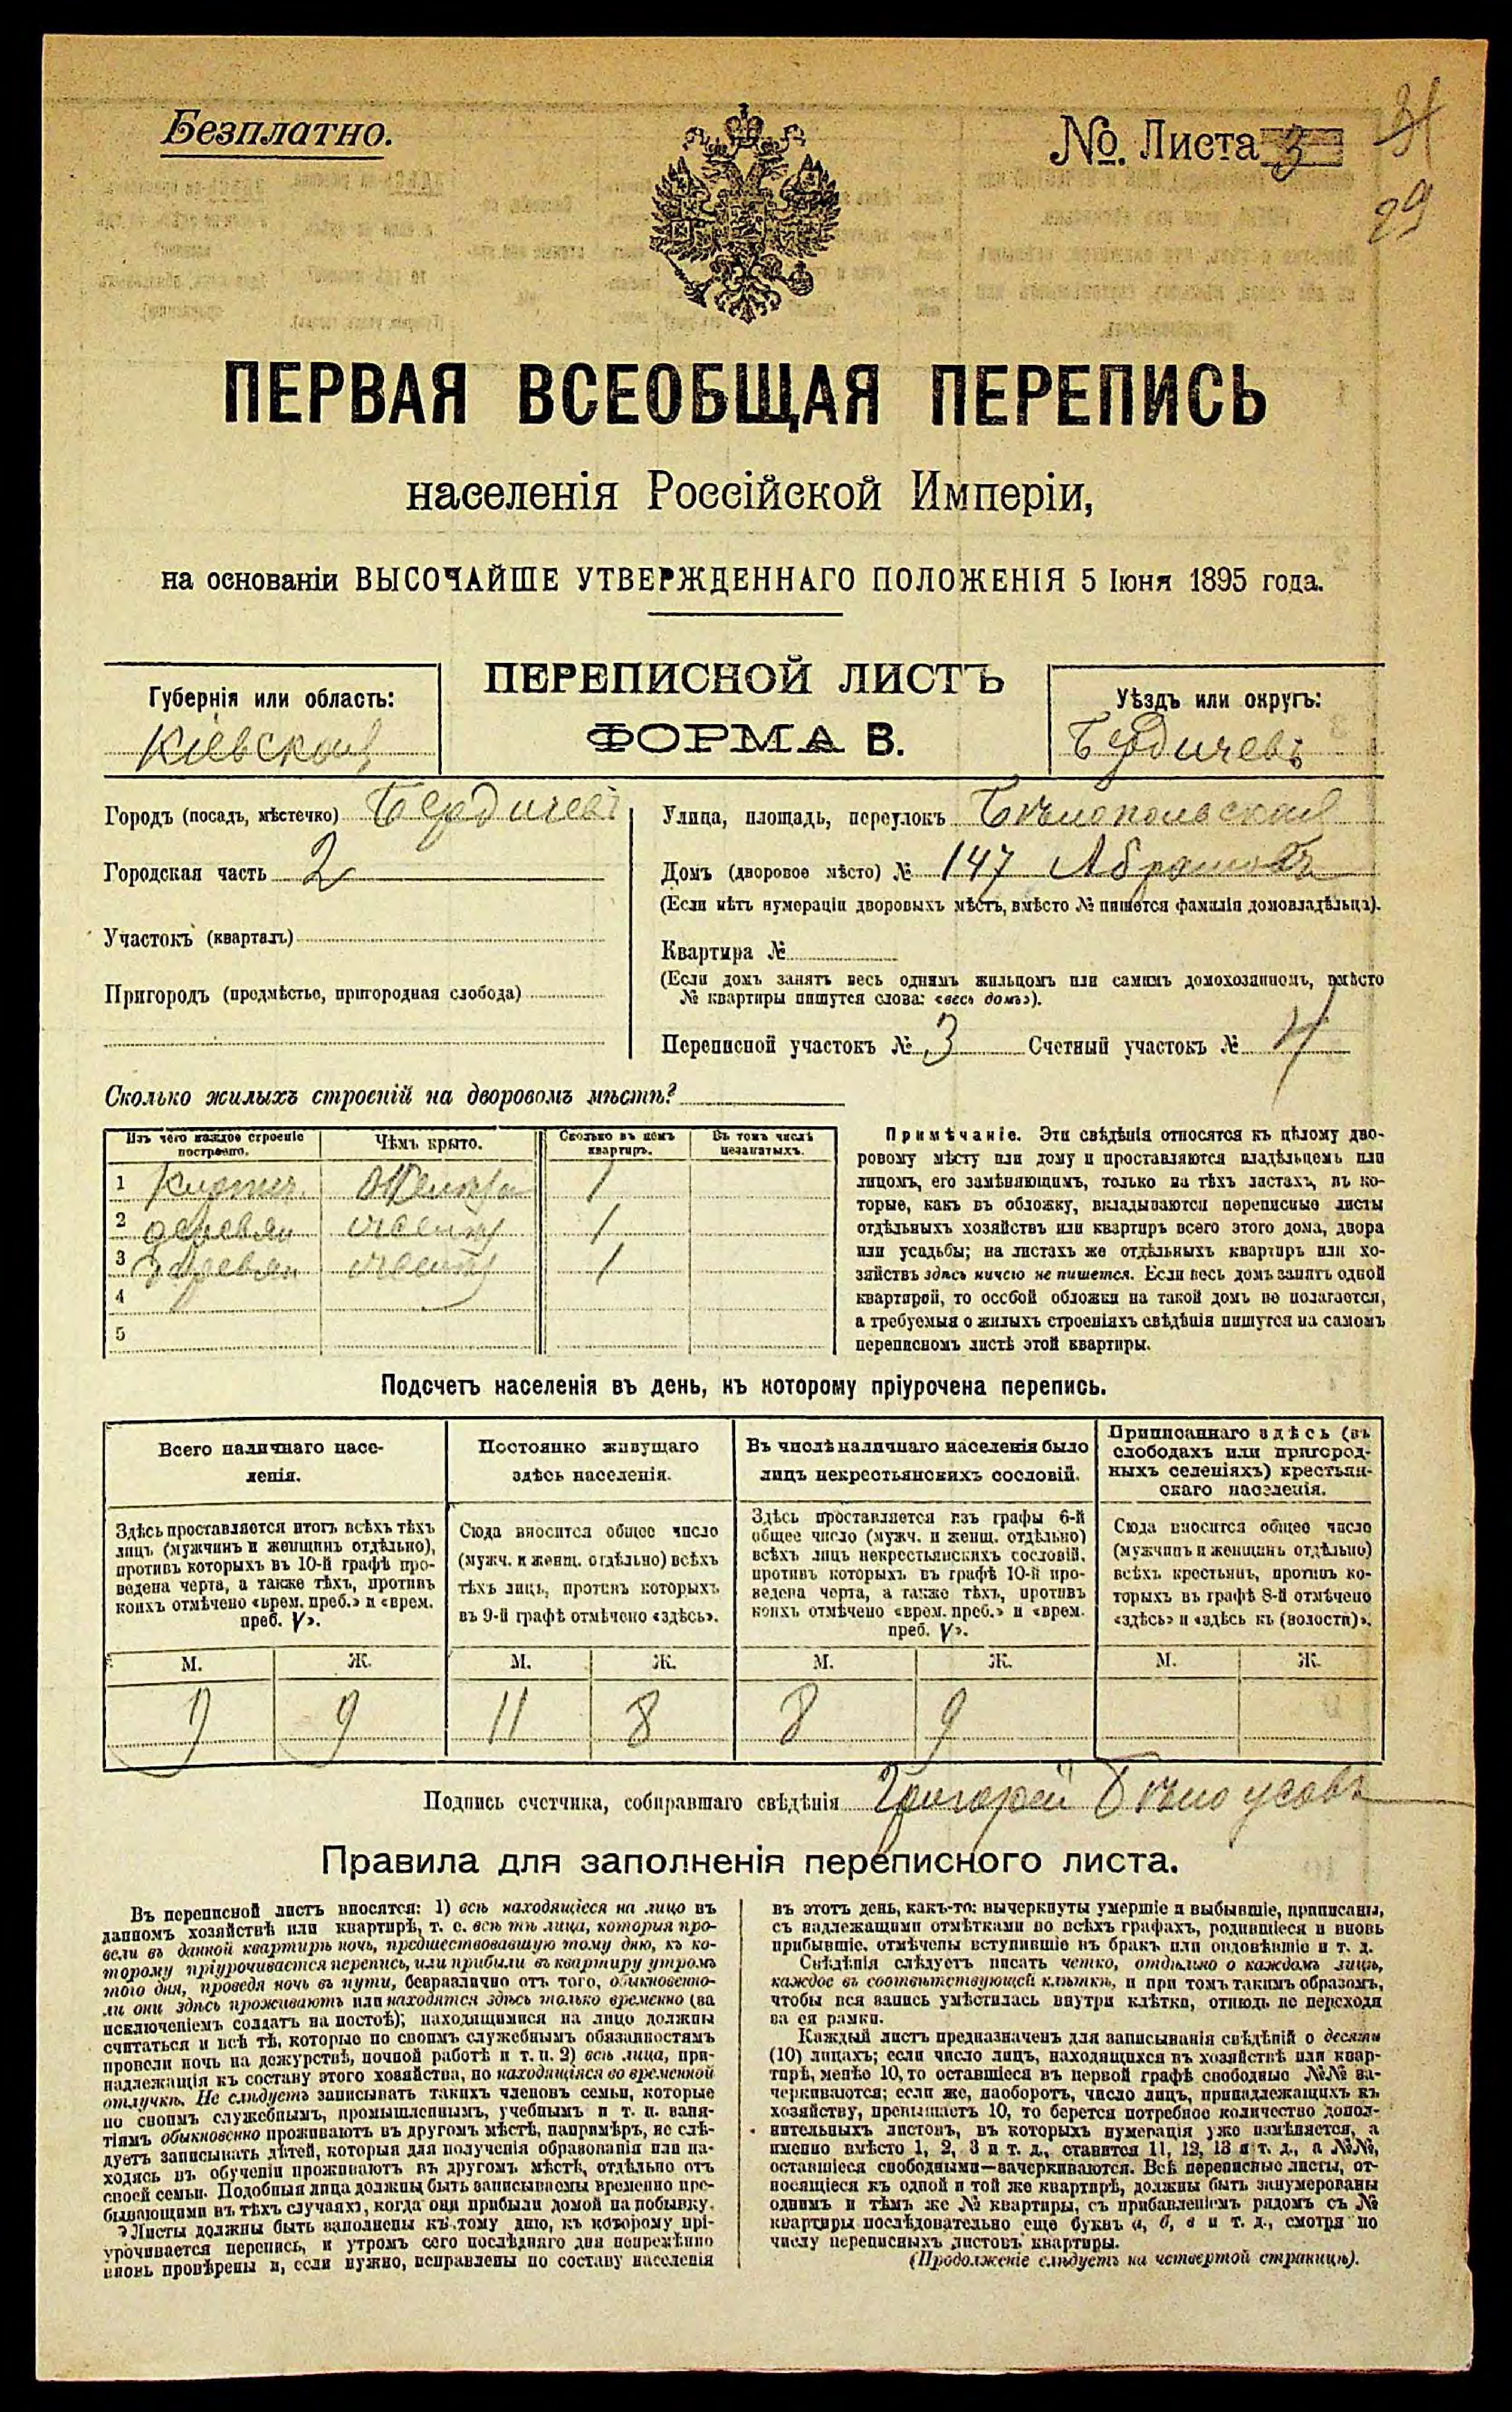 Безплатно.
№. Листа 3
29
ПЕРВАЯ ВСЕОБЩАЯ ПЕРЕПИСЬ
населенія Россійской Имперіи,
на основаніи ВЫСОЧАЙШЕ УТВЕРЖДЕННАГО ПОЛОЖЕНІЯ 5 Іюня 1895 года.
ПЕРЕПИСНОЙ ЛИСТЪ
ФОРМА В.
Губернія или область:
Кіевская
Уѣздъ или округъ:
Бердичевъ
Городъ (посадъ, мѣстечко) Бердичевъ
Городская часть 2
Участокъ (кварталъ)
Пригородъ (предмѣстье, пригородная слобода)
Улица, площадь, переулокъ Бѣлопольская
Домъ (дворовое мѣсто) № 147
(Если нѣтъ нумераціи дворовыхъ мѣстъ, вмѣсто № пишется фамилія домовладѣльца).
Квартира №
(Если домъ занятъ весь однимъ жильцомъ или самимъ домохозяиномъ, вмѣсто
№ квартиры пишутся слова: «весь домъ»).
Переписной участокъ № 3 Счетный участокъ № 4
Сколько жилыхъ строеній на дворовомъ мѣстѣ?
Изъ чего каждое строеніе
построено.
Чѣмъ крыто.
Сколько въ немъ
квартиръ.
Въ томъ числѣ
незанятыхъ.
1 1
2 деревян 1
3 деревян 1
4
5
Примѣчаніе. Эти свѣдѣнія относятся къ цѣлому дво-
ровому мѣсту или дому и проставляются владѣльцемъ или
лицомъ, его замѣняющимъ, только на тѣхъ листахъ, въ ко-
торые, какъ въ обложку, вкладываются переписные листы
отдѣльныхъ хозяйствъ или квартиръ всего этого дома, двора
или усадьбы; на листахъ же отдѣльныхъ квартиръ или хо-
зяйствъ здѣсь ничего не пишется. Если весь домъ занятъ одной
квартирой, то особой обложки на такой домъ не полагается,
а требуемыя о жилыхъ строеніяхъ свѣдѣнія пишутся на самомъ
переписномъ листѣ этой квартиры.
Подсчетъ населенія въ день, къ которому пріурочена перепись.
Всего наличнаго насе-
ленія.
Постоянно живущаго
здѣсь населенія.
Въ числѣ наличнаго населенія было
лицъ некрестьянскихъ сословій.
Приписаннаго здѣсь (въ
слободахъ или пригород-
ныхъ селеніяхъ) крестьян-
скаго населенія.
Здѣсь проставляется итогъ всѣхъ тѣхъ
лицъ (мужчинъ и женщинъ отдѣльно),
противъ которыхъ въ 10-й графѣ про-
ведена черта, а также тѣхъ, противъ
коихъ отмѣчено «врем. преб.» и «врем.
преб. V».
Сюда вносится общее число
(мужч. и женщ. отдѣльно) всѣхъ
тѣхъ лицъ, противъ которыхъ
въ 9-й графѣ отмѣчено «здѣсь».
Здѣсь проставляется изъ графы 6-й
общее число (мужч. и женщ. отдѣльно)
всѣхъ лицъ некрестьянскихъ сословій,
противъ которыхъ въ графѣ 10-й про-
ведена черта, а также тѣхъ, противъ
коихъ отмѣчено «врем. преб.» и «врем.
преб. V».
Сюда вносится общее число
(мужчинъ и женщинъ отдѣльно)
всѣхъ крестьянъ, противъ ко-
торыхъ въ графѣ 8-й отмѣчено
«здѣсь» и «здѣсь къ (волости)».
М. Ж. М. Ж. М. Ж. М. Ж.
9 9 11 8 8 9
Подпись счетчика, собиравшаго свѣдѣнія Григорій Бѣлоусовъ
Правила для заполненія переписного листа.
Въ переписной листъ вносятся: 1) всѣ находящіеся на лицо въ
данномъ хозяйствѣ или квартирѣ, т. е. всѣ тѣ лица, которыя про-
вели въ данной квартирѣ ночь, предшествовавшую тому дню, къ ко-
торому пріурочивается перепись, или прибыли въ квартиру утромъ
того дня, проведя ночь въ пути, безразлично отъ того, обыкновенно-
ли они здѣсь проживаютъ или находятся здѣсь только временно (за
исключеніемъ солдатъ на постоѣ); находящимися на лицо должны
считаться и всѣ тѣ, которые по своимъ служебнымъ обязанностямъ
провели ночь на дежурствѣ, ночной работѣ и т. п. 2) всѣ лица, при-
надлежащія къ составу этого хозяйства, но находящіяся во временной
отлучкѣ. Не слѣдуетъ записывать такихъ членовъ семьи, которые
по своимъ служебнымъ, промышленнымъ, учебнымъ и т. п. заня-
тіямъ обыкновенно проживаютъ въ другомъ мѣстѣ, напримѣръ, не слѣ-
дуетъ записывать дѣтей, которыя для полученія образованія или на-
ходясь въ обученіи проживаютъ въ другомъ мѣстѣ, отдѣльно отъ
своей семьи. Подобныя лица должны быть записываемы временно пре-
бывающими въ тѣхъ случаяхъ, когда они прибыли домой на побывку.
Листы должны быть заполнены къ тому дню, къ которому прі-
урочивается перепись, и утромъ сего послѣдняго дня непремѣнно
вновь провѣрены и, если нужно, исправлены по составу населенія
въ этотъ день, какъ-то: вычеркнуты умершіе и выбывшіе, приписаны,
съ надлежащими отмѣтками во всѣхъ графахъ, родившіеся и вновь
прибывшіе, отмѣчены вступившіе въ бракъ или овдовѣвшіе и т. д.
Свѣдѣнія слѣдуетъ писать четко, отдѣльно о каждомъ лицѣ,
каждое въ соотвѣтствующей клѣткѣ, и при томъ такимъ образомъ,
чтобы вся запись умѣстилась внутри клѣтки, отнюдь не переходя
за ея рамки.
Каждый листъ предназначенъ для записыванія свѣдѣній о десяти
(10) лицахъ; если число лицъ, находящихся въ хозяйствѣ или квар-
тирѣ, менѣе 10, то оставшіеся въ первой графѣ свободные №№ за-
черкиваются; если же, наоборотъ, число лицъ, принадлежащихъ къ
хозяйству, превышаетъ 10, то берется потребное количество допол-
нительныхъ листовъ, въ которыхъ нумерація уже измѣняется, а
именно вмѣсто 1, 2, 3 и т. д., ставится 11, 12, 13 и т. д., а №№,
оставшіеся свободными—зачеркиваются. Всѣ переписные листы, от-
носящіеся къ одной и той же квартирѣ, должны быть занумерованы
однимъ и тѣмъ же № квартиры, съ прибавленіемъ рядомъ съ №
квартиры послѣдовательно еще буквъ а, б, в и т. д., смотря по
числу переписныхъ листовъ квартиры.
(Продолженіе слѣдуетъ на четвертой страницѣ).